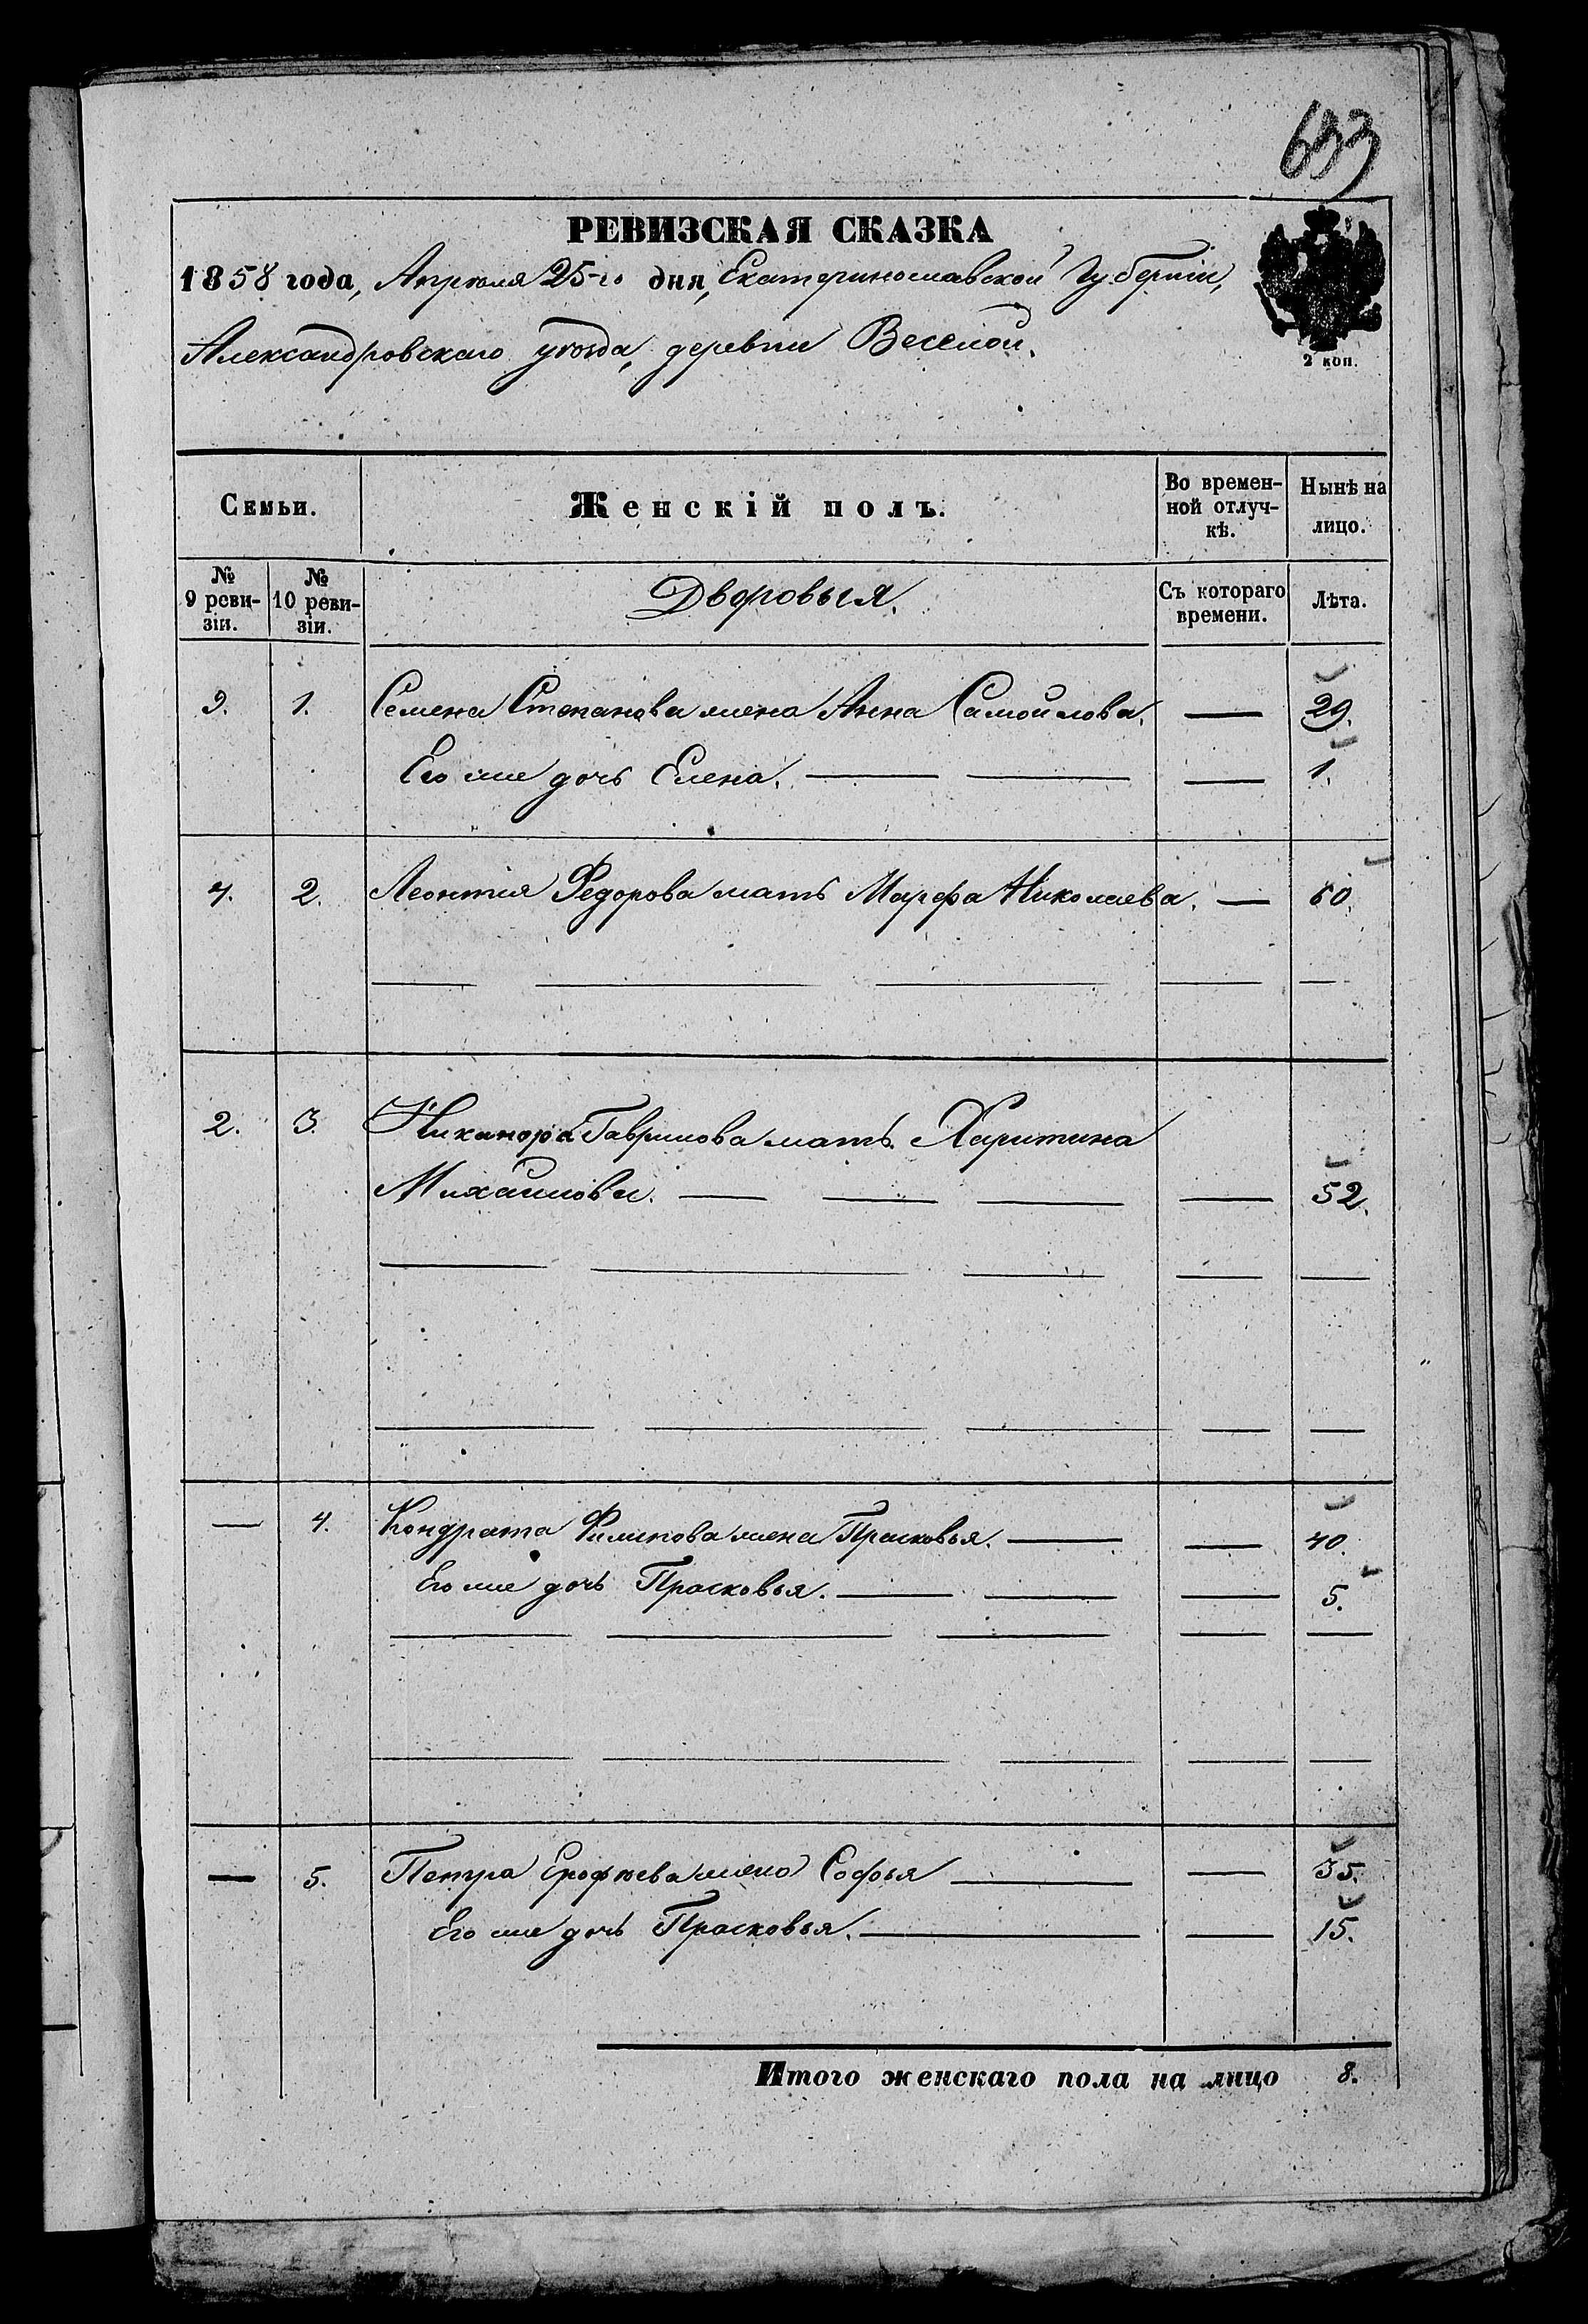 633
РЕВИЗСКАЯ СКАЗКА
1858 года, Апрѣля 25-го дня, Екатеринославской Губерніи,
Александровскаго уѣзда, деревни Веселой.
2 коп.
Семьи. Женскій полъ. Во времен-ной отлуч-кѣ. Нынѣ на лицо.
№ 9 реви-зіи. № 10 реви-зіи. Дворовыя. Съ котораго времени. Лѣта.
3. 1. Семена Степанова жена Анна Самойлова. — 29.
Его же дочь Елена. — 1.
4. 2. Леонтія Федорова мать Марфа Николаева. — 60.
2. 3. Никанора Гаврилова мать Харитина
Михайлова. — 52.
— 4. Кондрата Филипова жена Прасковья. — 40.
Его же дочь Прасковья. — 5.
— 5. Петра Ерофѣева жена Софья — 35.
Его же дочь Прасковья. — 15.
Итого женскаго пола на лицо 8.